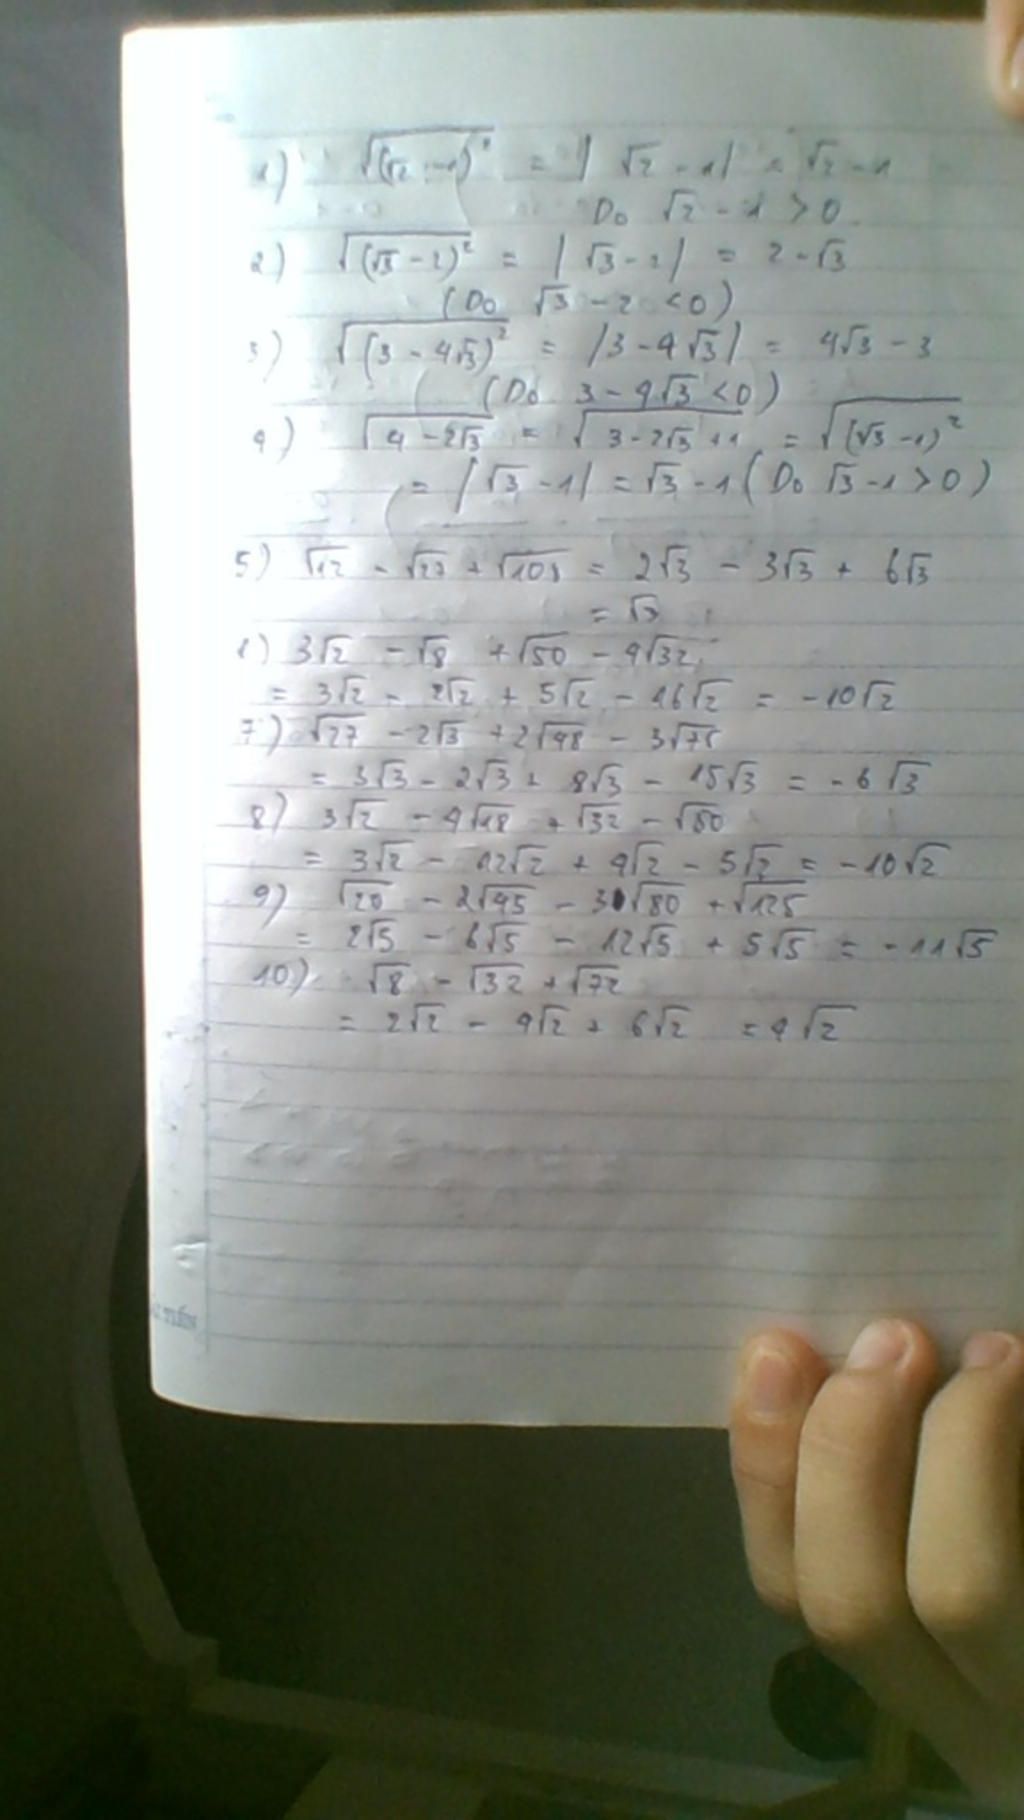 1) √(√2 - 1)² = |√2 - 1| = √2 - 1
Do √2 - 1 > 0
2) √(√3 - 2)² = |√3 - 2| = 2 - √3
(Do √3 - 2 < 0)
3) √(3 - 4√3)² = |3 - 4√3| = 4√3 - 3
(Do 3 - 4√3 < 0)
4) √(4 - 2√3) = √(3 - 2√3 + 1) = √(√3 - 1)²
= |√3 - 1| = √3 - 1 (Do √3 - 1 > 0)
5) √12 - √27 + √108 = 2√3 - 3√3 + 6√3
= √3
3√2 - √8 + √50 - 4√32
= 3√2 - 2√2 + 5√2 - 16√2 = -10√2
7) √27 - 2√3 + 2√48 - 3√75
= 3√3 - 2√3 + 8√3 - 15√3 = -6√3
8) 3√2 - 4√18 + √32 - √50
= 3√2 - 12√2 + 4√2 - 5√2 = -10√2
9) √20 - 2√45 - 3√80 + √125
= 2√5 - 6√5 - 12√5 + 5√5 = -11√5
10) √8 - √32 + √72
= 2√2 - 4√2 + 6√2 = 4√2